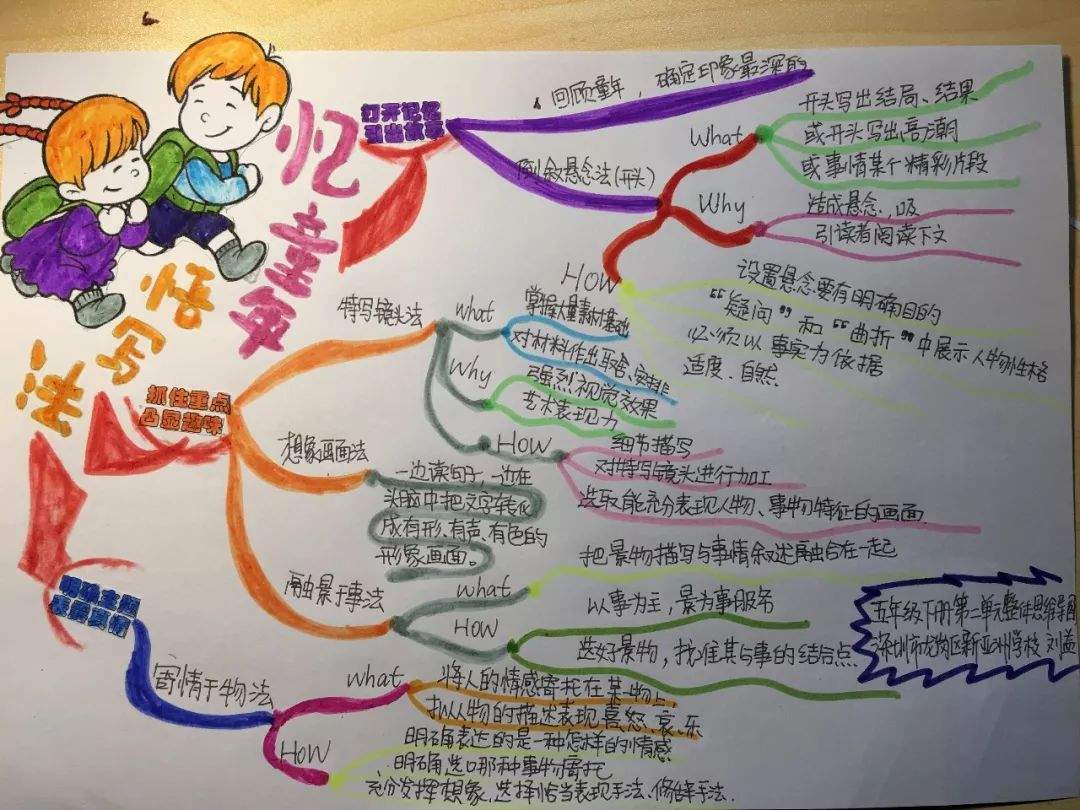 忆童年
悟写法
打开记忆
引出故事
回顾童年，确定印象最深的
倒叙悬念法(开头)
What
开头写出结局、结果
或开头写出高潮
或事情某个精彩片段
Why
造成悬念，吸
引读者阅读下文
How
设置悬念要有明确目的
“疑问”和“曲折”中展示人物性格
必须以事实为依据
适度、自然.
抓住重点
凸显趣味
特写镜头法
what
掌握大量素材基础
对材料作出取舍、安排
Why
强烈视觉效果
艺术表现力
How
细节描写
对特写镜头进行加工
选取能充分表现人物、事物特征的画面.
想象画面法
一边读句子，一边在
头脑中把文字转化
成有形、有声、有色的
形象画面。
融景于事法
what
把景物描写与事情叙述融合在一起
How
以事为主，景为事服务
选好景物，找准其与事的结合点
明确主题
表露真情
寄情于物法
what
将人的情感寄托在某物上
拟人物的描述表现喜、怒、哀、乐
How
明确表达的是一种怎样的情感
明确选口那种事物寄托
充分发挥想象，选择恰当表现手法、修辞手法.
五年级下册第二单元整体思维导图
深圳市龙岗区新亚洲学校 刘益